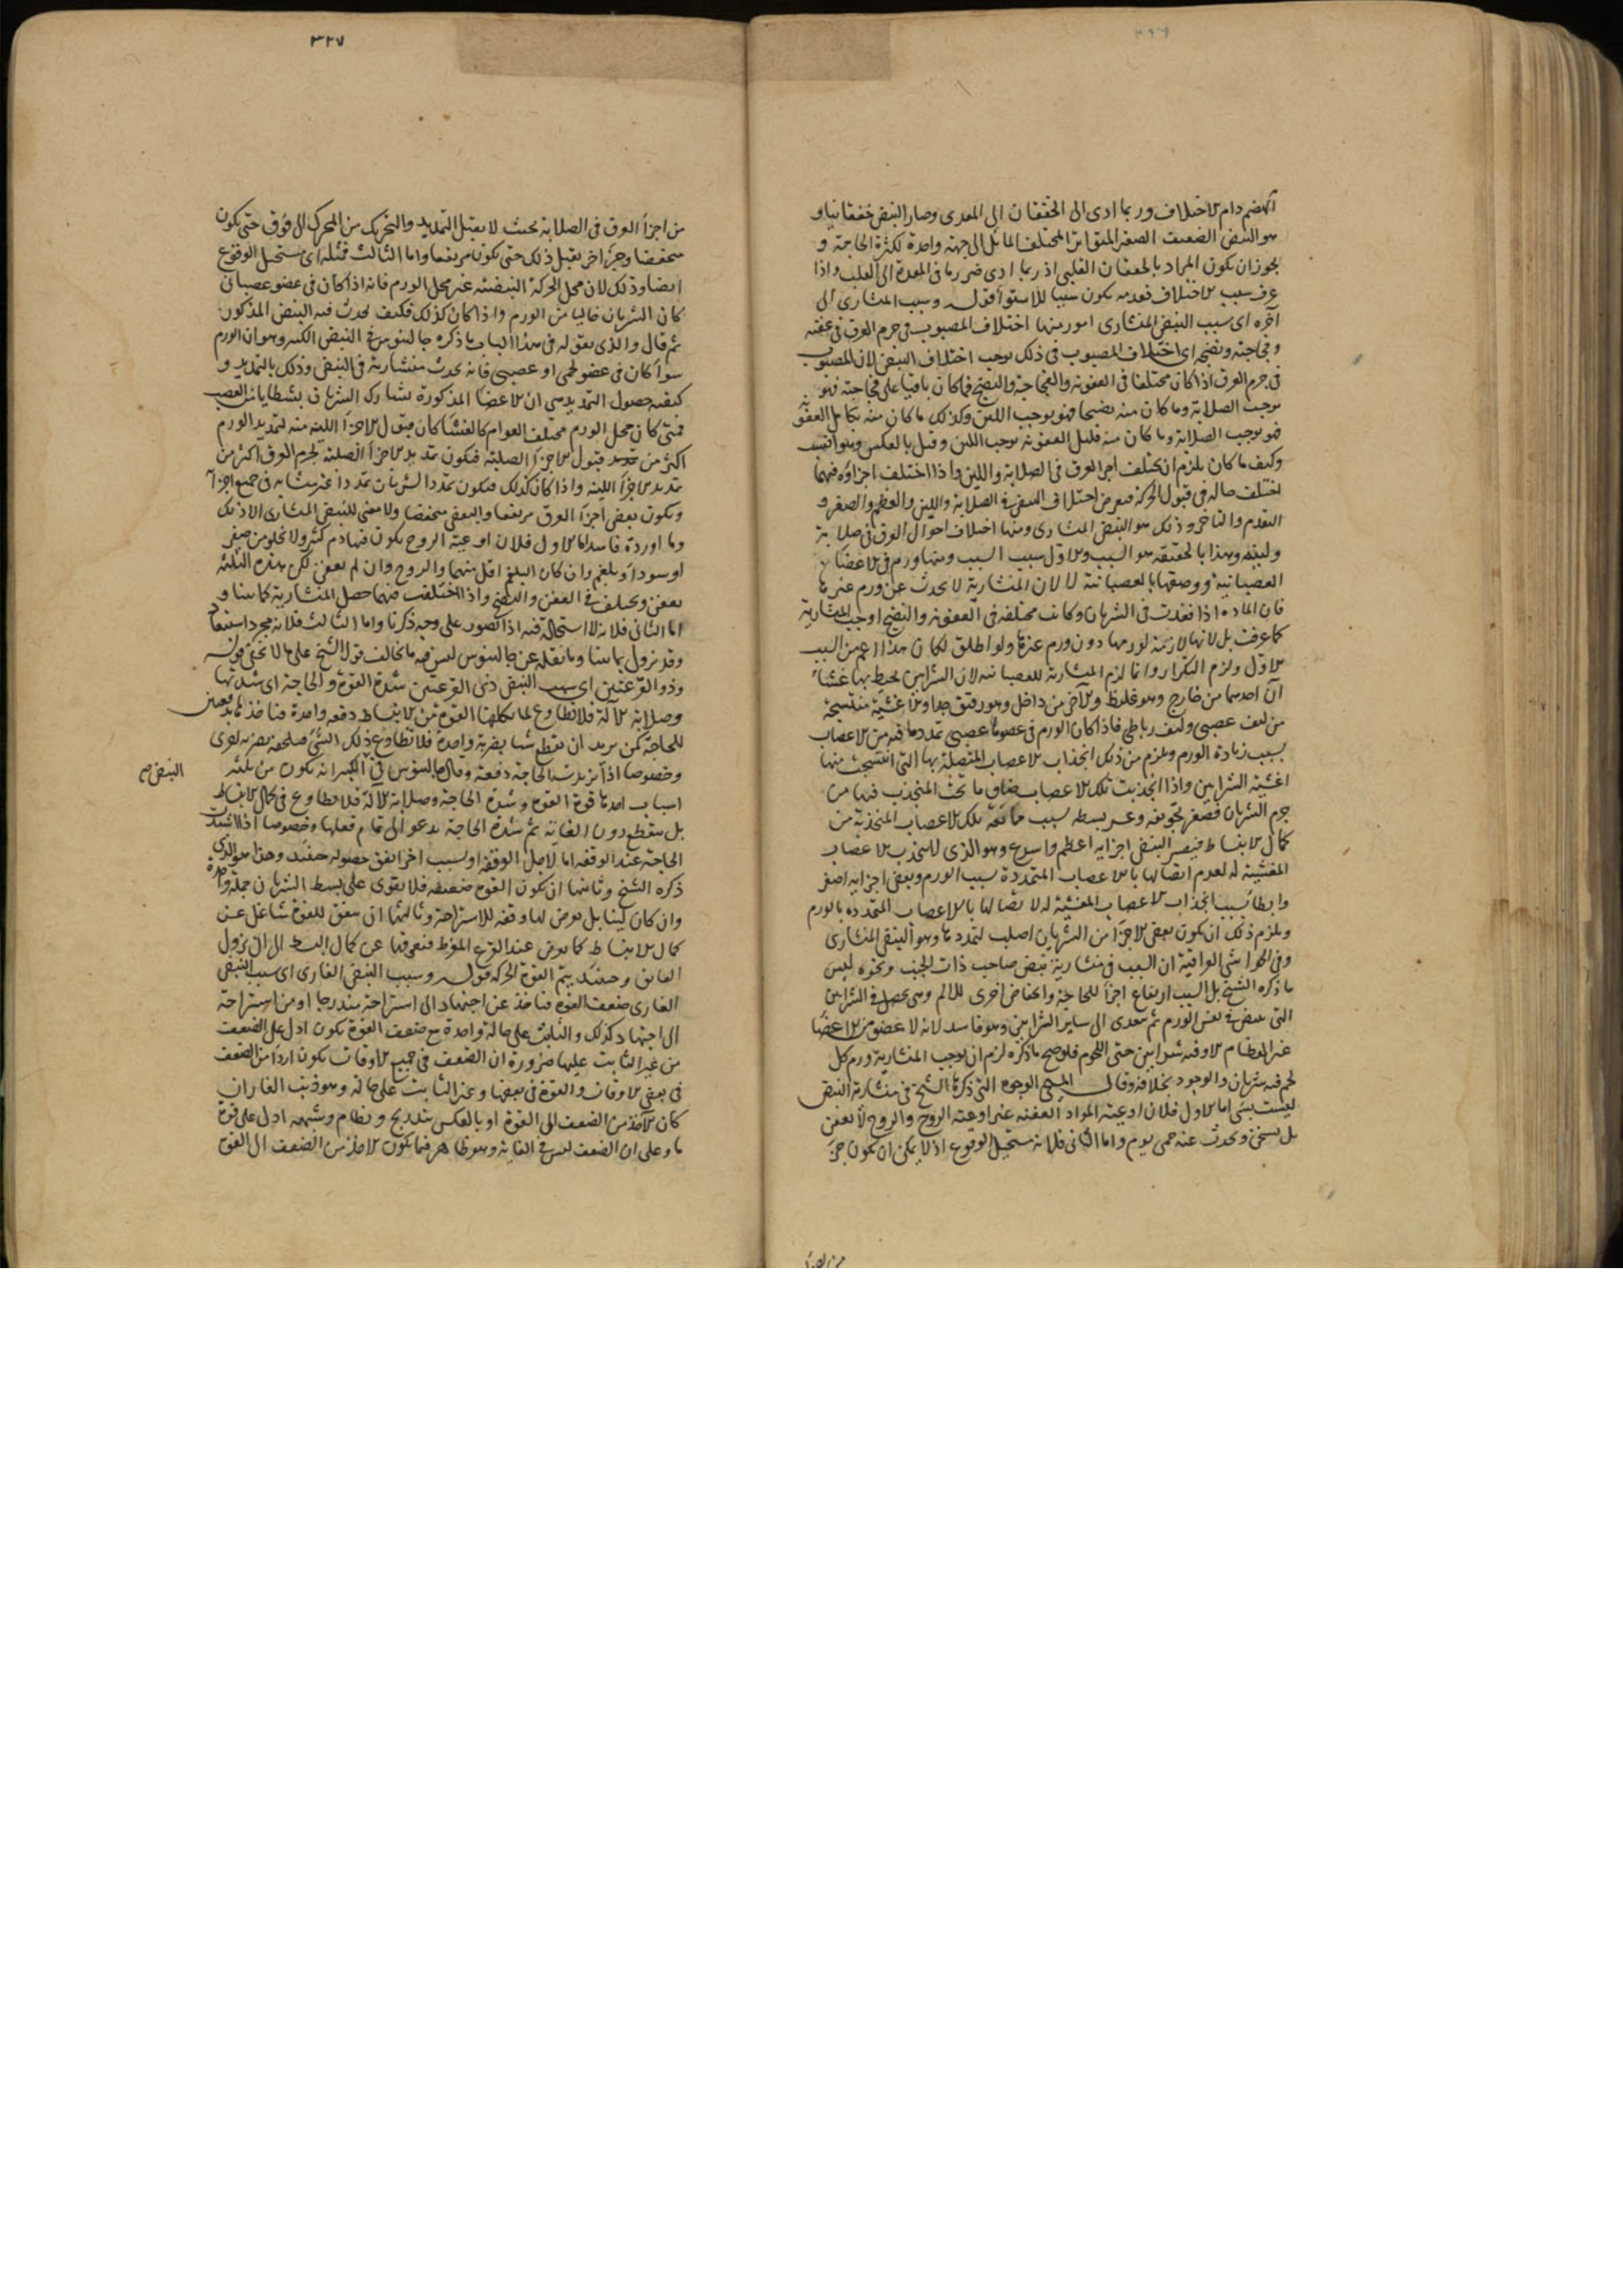 ٣٢٦
انهضم دام الاختلاف وربما ادى الى الخفقان اى المعدى وصار النبض خفقانيا و
هو النبض الضعيف الصغير المتواتر المختلف المائل الى جهة واحدة لكثرة الحاجة و
يجوز ان يكون المراد بالخفقان القلبى اذ ربما ادى ضرر ما فى المعدة الى القلب واذا
عرف سبب الاختلاف فعدمه يكون سببا للاستواء قوله وسبب المنشارى الى
آخره اى سبب النبض المنشارى امور منها اختلاف المصبوب فى جرم العرق فى عفنه
وفجاجته ونضجه اى اختلاف المصبوب فى ذلك يوجب اختلاف النبض لان المصبوب
فى جرم العرق اذا كان مختلفا فى العفونة والفجاجة والنضج فما كان باقيا على فجاجته فهو
يوجب الصلابة وما كان منه نضيجا فهو يوجب اللين وكذلك ما كان منه كامل العفونة
فهو يوجب الصلابة وما كان منه قليل العفونة يوجب اللين وقيل بالعكس وهو
وكيف ما كان يلزم ان يختلف اجزاء العرق فى الصلابة واللين واذا اختلف اجزاؤه فيهما
اختلف حاله فى قبول الحركة فيعرض اختلاف النبض فى الصلابة واللين والعظم والصغر و
التقدم والتاخر وذلك هو النبض المنشارى ومنها اختلاف احوال العرق فى صلابة
ولينه وهذا بالحقيقة هو السبب والاول سبب السبب ومنها ورم فى الاعضاء
العصبانية ووصفها بالعصبانية لا لان المنشارية لا يحدث عن ورم غيرها
فان المادة اذا نفذت فى الشريان وكانت مختلفة فى العفونة والنضج اوجب المنشارية
كما عرفت بل لانها لازمة لورمها دون ورم غيرها ولو اطلق لكان هذا اعم من السبب
الاول ولزم التكرار وانما لزم المنشارية للعصبانية لان الشرايين يحيط بها غشاء
آن احدهما من خارج وهو غليظ والآخر من داخل وهو رقيق جدا والاغشية منتسجة
من ليف عصبى وليف رباطى فاذا كان الورم فى عضو عصبى تمدد ما فيه من الاعصاب
بسبب زيادة الورم ويلزم من ذلك انجذاب الاعصاب المتصلة بها التى انتسجت منها
اغشية الشرايين واذا انجذبت تلك الاعصاب ضاق ما تحت المنجذب فيها من
جرم الشريان فصغر تجويفه وعسر بسطه بسبب ممانعة تلك الاعصاب المنجذبة من
كمال الانبساط فيصير النبض اجزائه اعظم واسرع وهو الذى لا ينجذب الاعصاب
المغشية له لعدم اتصالها بالاعصاب المتمددة بسبب الورم وبعض اجزائه اصغر
وابطأ بسبب انجذاب الاعصاب المغشية له لاتصالها بالاعصاب المتمددة بالورم
ويلزم ذلك ان يكون بعض الاجزاء من الشريان اصلب لتمددها وهو النبض المنشارى
وفى الحواشى العراقية ان السبب فى منشارية نبض صاحب ذات الجنب ونحوه ليس
ما ذكره الشيخ بل السبب ارتفاع اجزاء للحاجة وانخفاض اخرى للالم وهى يحصل فى الشرايين
التى تنبض فى نفس الورم ثم يتعدى الى ساير الشرايين وهو فاسد لانه لا عضو من الاعضاء
غير العظام الا وفيه شرايين حتى اللحوم فلو صح ما ذكره لزم ان يوجب المنشارية ورم كل
لحم فيه شريان والوجود بخلافه وقال المسيحى الوجوه التى ذكرها الشيخ فى منشارية النبض
ليست بشئ اما الاول فلان اوعية المواد العفنة غير اوعية الروح والروح لا يعفن
بل يسخن ويحدث عنه حمى يوم واما الثانى فلانه مستحيل الوقوع اذ لا يمكن ان يكون جزء
من اجزاء
٣٢٧
من اجزاء العرق فى الصلابة بحيث لا يقبل التمديد والتحريك من المحرك الى فوق حتى يكون
منخفضا وجزء آخر يقبل ذلك حتى يكون مرتفعا واما الثالث فمثله اى مستحيل الوقوع
ايضا وذلك لان محل الحركة النبضية غير محل الورم فانه اذا كان فى عضو عصبانى
كان الشريان خاليا من الورم واذا كان كذلك فكيف يحدث فيه النبض المذكور
ثم قال والذى يعول له فى هذا الباب ما ذكره جالينوس فى النبض الكبير وهو ان الورم
سواء كان فى عضو لحمى او عصبى فانه يحدث منشارية فى النبض وذلك بالتمديد و
كيفية حصول التمديد هى ان الاعضاء المذكورة يشارك الشريان بشظايا من العصب
فمتى كان محل الورم مختلف القوام كالغشاء كان قبول الاجزاء اللينة منه لتمديد الورم
اكثر من قبول الاجزاء الصلبة فيكون تمديد الاجزاء الصلبة لجرم العرق اكثر من
تمديد الاجزاء اللينة واذا كان كذلك فيكون تمدد الشريان تمددا غير متشابه فى جميع اجزائه
ويكون بعض اجزاء العرق مرتفعا والبعض منخفضا ولا معنى للنبض المنشارى الا ذلك
وما اورده فاسد اما الاول فلان اوعية الروح يكون فيها دم كثير ولا يخلو من صفر
او سوداء وبلغم وان كان البلغم اقل منهما والروح وان لم يعفن لكن هذه الثلاثة
يعفن ويختلف فى العفن والنضج واذا اختلفت فيهما حصل المنشارية كما بينا و
اما الثانى فلانه لا استحالة فيه اذا تصور على وجه ذكرنا واما الثالث فلانه مجرد استبعاد
وقد يزول بما بينا وما نقله عن جالينوس ليس فيه ما يخالف قول الشيخ على ما لا يخفى قوله
وذو القرعتين اى سبب النبض ذى القرعتين شدة القوة والحاجة اى شدتها
وصلابة الآلة فلا تطاوع لما يكلفها القوة من الانبساط دفعة واحدة
للحاجة كمن يريد ان يقطع شيئا بضربة واحدة فلا تطاوع ذلك الشئ فيلحقه بضربة اخرى
وخصوصا اذا تزيدت الحاجة دفعة وقال جالينوس فى الكبير انه يكون من ثلثة
النبض صح
اسباب احدها قوة القوة وشدة الحاجة وصلابة الآلة فلا تطاوع فى كمال الانبساط
بل ينقطع دون الغاية ثم شدة الحاجة يدعو الى تمام فعلها وخصوصا اذا اشتدت
الحاجة عند الوقفة اما لاجل الوقفة او لسبب آخر اتفق حصوله حينئذ وهذا هو الذى
ذكره الشيخ وثانيها ان يكون القوة ضعيفة فلا يقوى على بسط الشريان جملة واحدة
وان كان لينا بل يعرض لها وقفة للاستراحة وثالثها ان يتفق للقوة شاغل عن
كمال الانبساط كما يعرض عند الفزع المفرط فيعوقها عن كمال البسط الى ان يزول
العائق وحينئذ يتم القوة الحركة قوله وسبب النبض الفارى اى سبب النبض
الفارى ضعف القوة فتاخذ عن اجتهاد الى استراحة متدرجا او من استراحة
الى اجتهاد كذلك والثابت على حالة واحدة مع ضعف القوة يكون ادل على الضعف
من غير الثابت عليها ضرورة ان الضعف فى جميع الاوقات يكون اردأ من الضعف
فى بعض الاوقات والقوة فى بعضها وغير الثابت على حاله وهو ذنب الفار ان
كان الآخذ من الضعف الى القوة او بالعكس بتدريج ونظام وشبهه ادل على قوة
ما وعلى ان الضعف ليس فى الغاية وهو ظاهر فيما يكون الآخذ من الضعف الى القوة